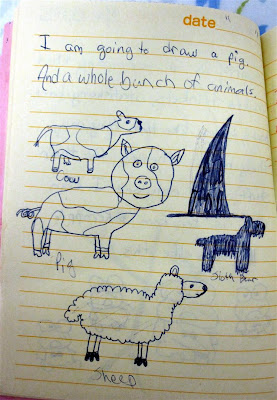 date
I am going to draw a pig.
And a whole bunch of animals.
Cow
Pig
Sloth Bear
Sheep